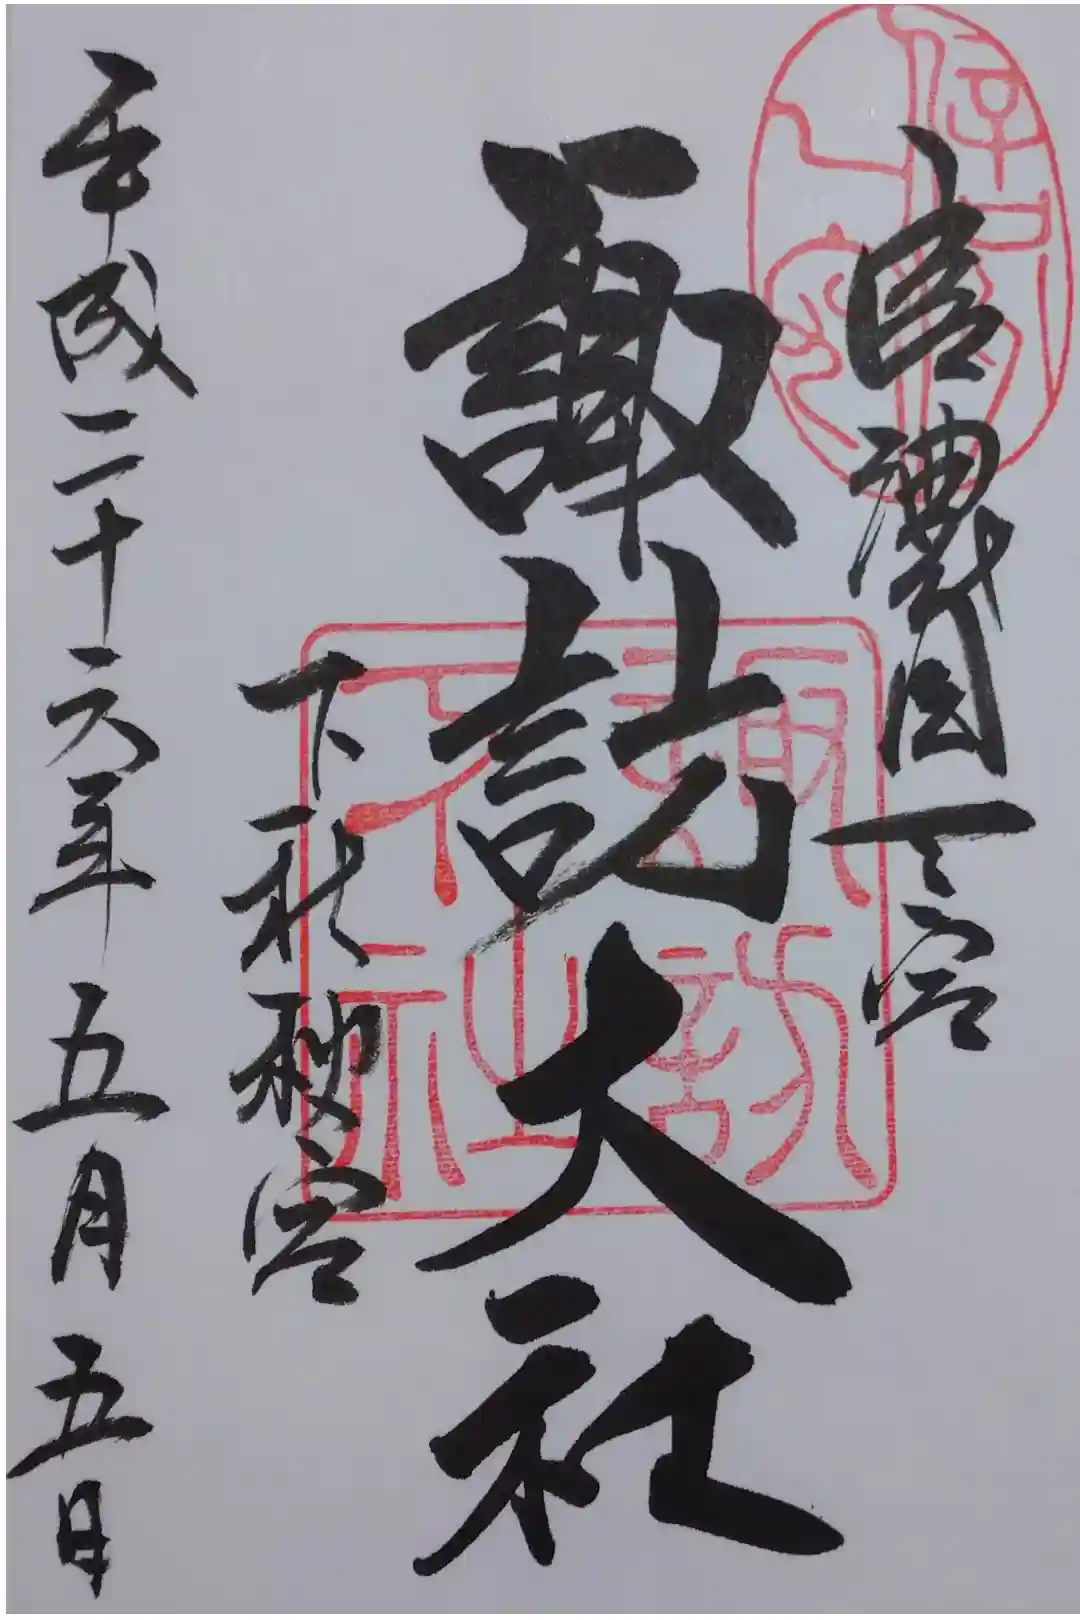 信濃国一之宮
諏訪大社
下社秋宮
平成二十六年五月五日
諏訪下社